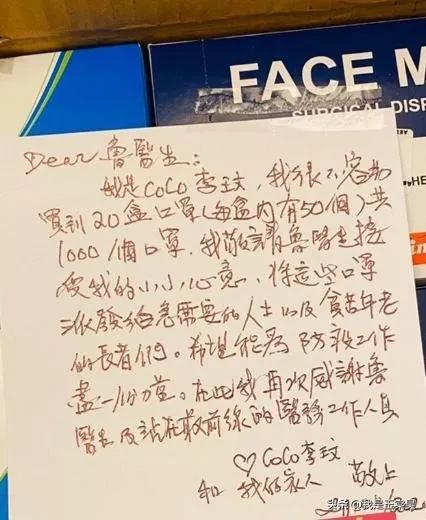 FACE M
SURGICAL DISP
HE
Dear 魯醫生：
我是CoCo 李玟，我很不容易
買到20盒口罩(每盒內有50個)共
1000個口罩，我敬請魯醫生接
受我的小小心意，將這些口罩
派發給急需要的人士以及貧苦年老
的長者們。希望能為防疫工作
盡一份力量。在此我再次感謝魯
醫生及站在最前線的醫護工作人員
♡CoCo李玟
和 我的家人 敬上
头条 @我是五桑果